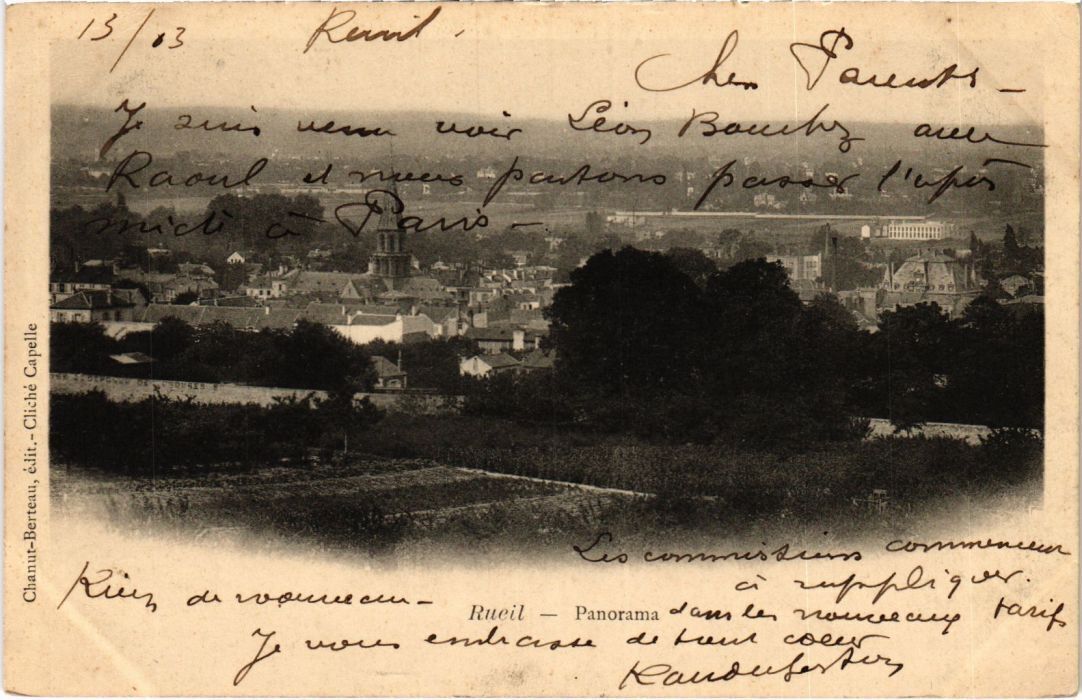 13/03 Rueil.
Chers Parents -
Je suis venu voir Léon Bouchez avec
Raoul et nous partons passer l'après
midi à Paris -
Chanut-Berteau, édit. - Cliché Capelle
Les commissions commencent
à rappliquer.
dans les nouveaux tarifs
Rien de nouveau -
Rueil — Panorama
Je vous embrasse de tout coeur